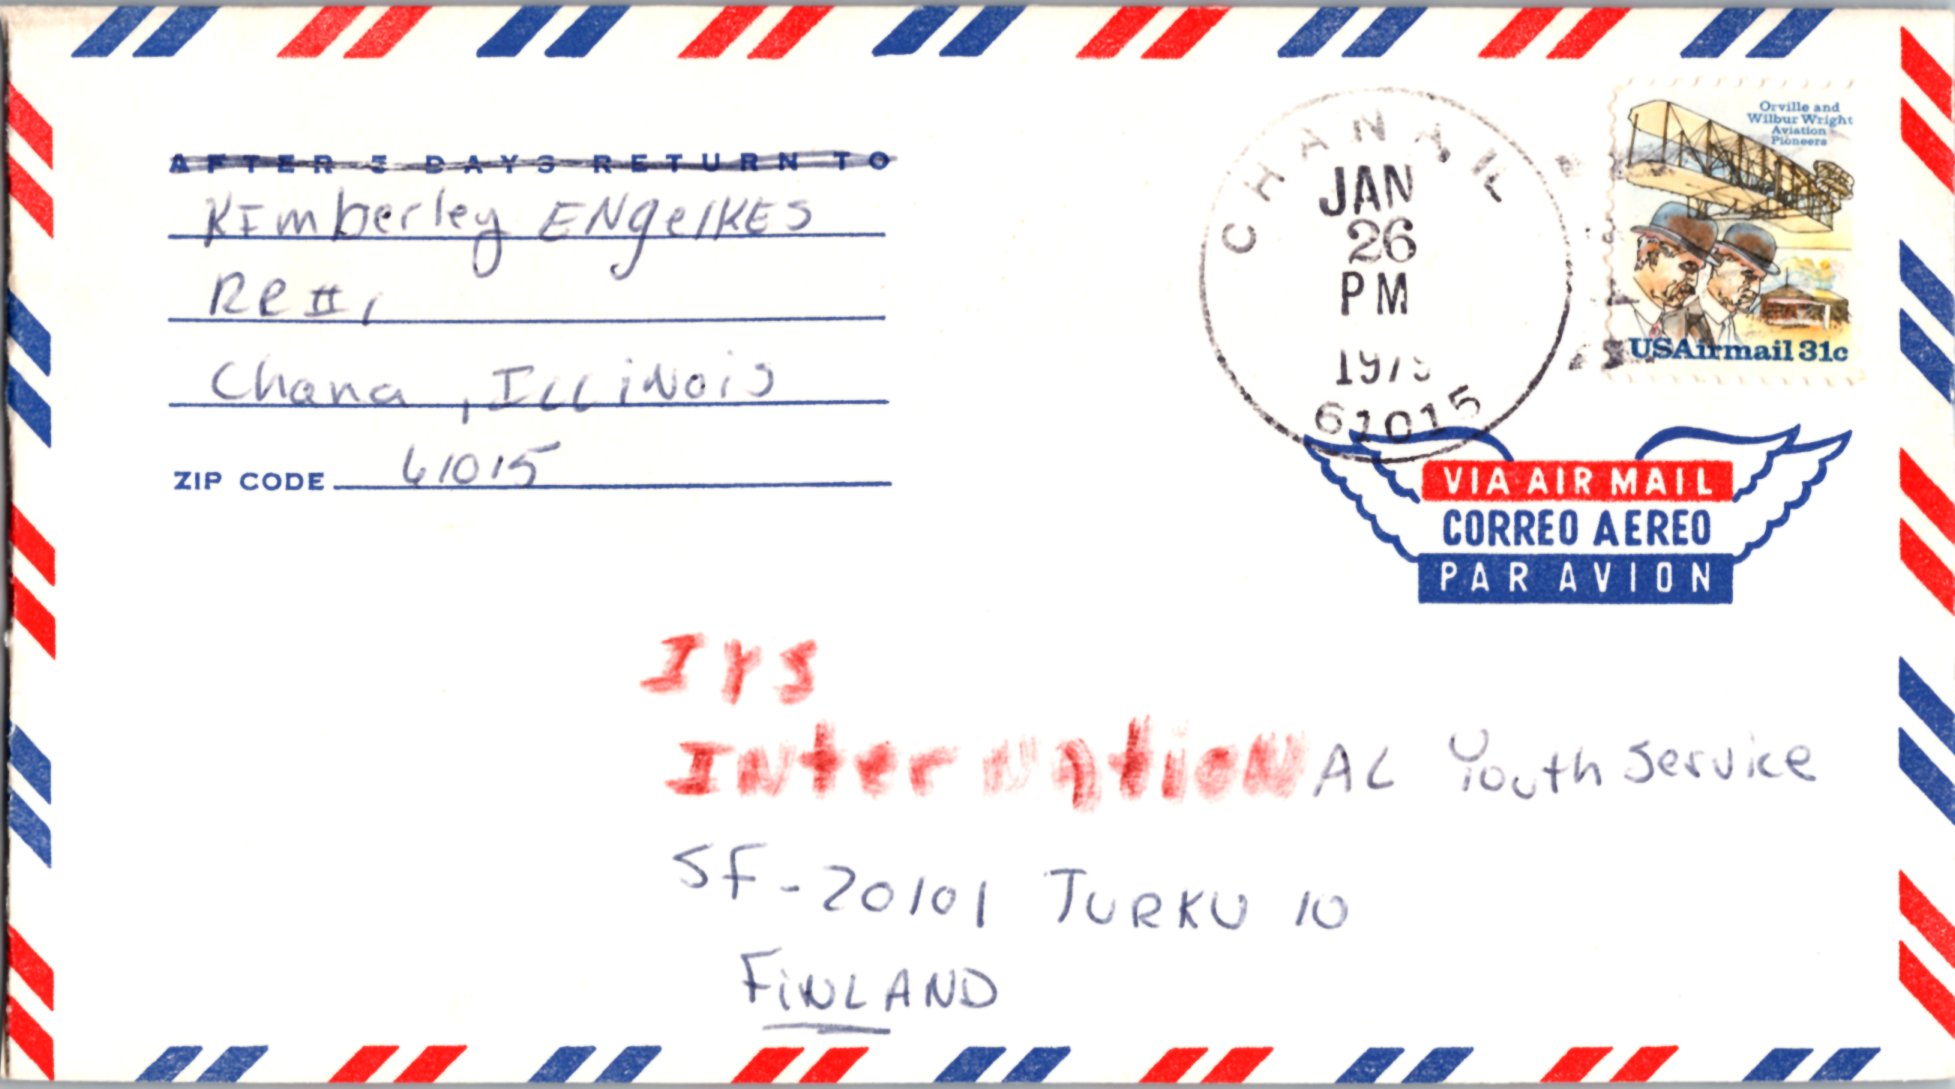 AFTER 5 DAYS RETURN TO
KImberley ENgelKES
RR #1
Chana, ILLiNois
ZIP CODE 61015
CHANA, IL
JAN
26
PM
1979
61015
Orville and
Wilbur Wright
Aviation
Pioneers
USAirmail 31c
VIA AIR MAIL
CORREO AEREO
PAR AVION
IYS
INterNatioNAL Youth Service
SF-20101 TURKU 10
FiNLAND